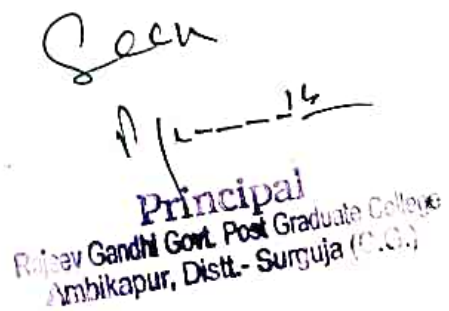 Seen
Principal
Rajeev Gandhi Govt. Post Graduate College
Ambikapur, Distt.- Surguja (C.G.)